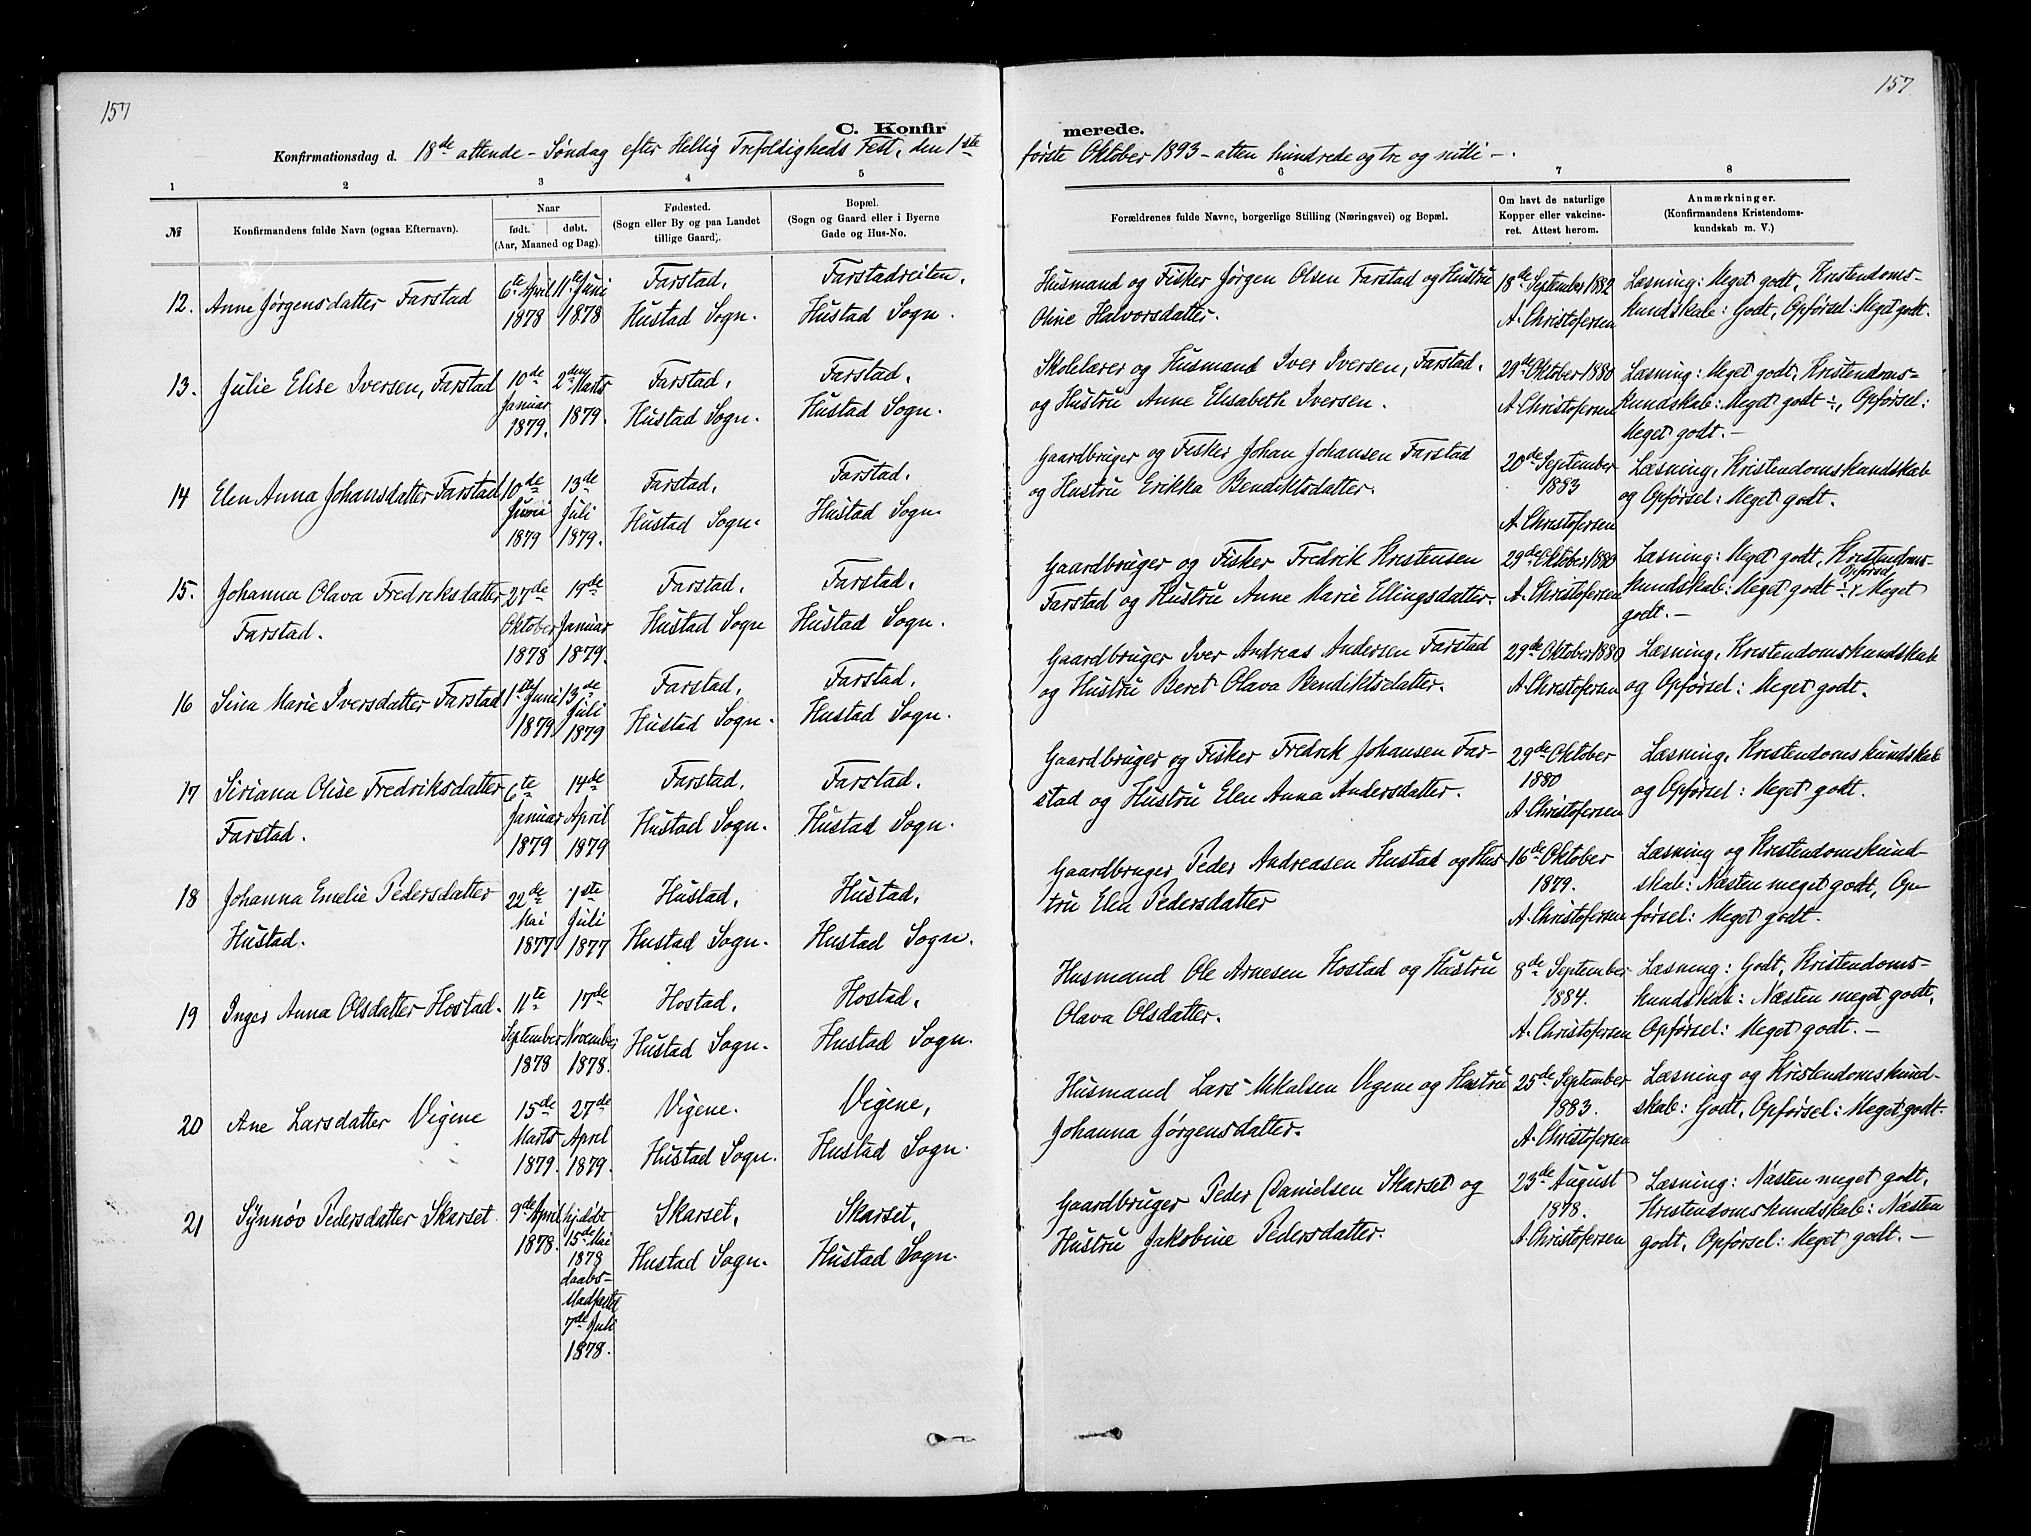 157
157
C. Konfirmerede.
Konfirmationsdag d. 18de attende - Søndag efter Hellig Trefoldigheds Fest, den 1ste første Oktober 1893 - atten hundrede og tre og nitti -.
1 2 3 4 5 6 7 8
№
Konfirmandens fulde Navn (ogsaa Efternavn).
Naar
født. døbt.
(Aar, Maaned og Dag).
Fødested.
(Sogn eller By og paa Landet
tillige Gaard).
Bopæl.
(Sogn og Gaard eller i Byerne
Gade og Hus-No.
Forældrenes fulde Navne, borgerlige Stilling (Næringsvei) og Bopæl.
Om havt de naturlige
Kopper eller vakcine-
ret. Attest herom.
Anmærkninger.
(Konfirmandens Kristendoms-
kundskab m. V.)
12. Anne Jørgensdatter Farstad
6te April
1878
11te Juni
1878
Farstad,
Hustad Sogn.
Farstadreiten,
Hustad Sogn.
Husmand og Fisker Jørgen Olsen Farstad og Hustru
Oline Halvorsdatter.
18de September 1882
A. Christofersen
Læsning: Meget godt, Kristendoms-
kundskab: Godt, Opførsel: Meget godt.
13. Julie Elise Iversen, Farstad
10de
Januar
1879.
2den
Marts
1879.
Farstad,
Hustad Sogn.
Farstad,
Hustad Sogn.
Skolelærer og Husmand Iver Iversen, Farstad.
og Hustru Anne Elisabeth Iversen.
29de Oktober 1880
A. Christofersen
Læsning: Meget godt, Kristendoms-
kundskab: Meget godt ÷, Opførsel:
Meget godt. -
14 Elen Anna Johansdatter Farstad
10de
Juni
1879
13de
Juli
1879.
Farstad,
Hustad Sogn.
Farstad,
Hustad Sogn.
Gaardbruger og Fisker Johan Johansen Farstad
og Hustru Erikka Bendiktsdatter.
20de September
1883
A. Christofersen
Læsning, Kristendomskundskab
og Opførsel: Meget godt.
15. Johanna Olava Fredriksdatter
Farstad.
27de
Oktober
1878
19de
Januar
1879.
Farstad,
Hustad Sogn
Farstad,
Hustad Sogn.
Gaardbruger og Fisker Fredrik Kristensen
Farstad og Hustru Anne Marie Ellingsdatter.
29de Oktober 1880
A. Christofersen
Læsning: Meget godt, Kristendoms-
kundskab: Meget godt ÷, Opførsel Meget
godt. -
16 Sina Marie Iversdatter Farstad
1ste Juni
1879.
13de
Juli
1879
Farstad,
Hustad Sogn.
Farstad,
Hustad Sogn.
Gaardbruger Iver Andreas Andersen Farstad
og Hustru Beret Olava Bendiktsdatter.
29de Oktober 1880
A. Christofersen
Læsning, Kristendomskundskab
og Opførsel: Meget godt.
17 Siriana Olise Fredriksdatter
Farstad.
6te
Januar
1879
14de
April
1879
Farstad,
Hustad Sogn.
Farstad.
Hustad Sogn.
Gaardbruger og Fisker Fredrik Johansen Far-
stad og Hustru Elen Anna Andersdatter.
29de Oktober
1880
A. Christofersen
Læsning, Kristendomskundskab
og Opførsel: Meget godt.
18 Johanna Emelie Pedersdatter
Hustad.
22de
Mai
1877
1ste
Juli
1877
Hustad,
Hustad Sogn.
Hustad,
Hustad Sogn.
Gaardbruger Peder Andreasen Hustad og Hus-
tru Elen Pedersdatter
16de Oktober
1879.
A. Christofersen
Læsning og Kristendomskund-
skab: Næsten meget godt, Op-
førsel: Meget godt.
19 Inger Anna Olsdatter Hostad.
11te
September
1878
17de
November
1878.
Hostad,
Hustad Sogn.
Hostad,
Hustad Sogn.
Husmand Ole Arnesen Hostad og Hustru
Olava Olsdatter.
8de September
1884.
A. Christofersen
Læsning: Godt, Kristendoms-
kundskab: Næsten meget godt,
Opførsel: Meget godt. -
20 Ane Larsdatter Vigene
15de
Marts
1879.
27de
April
1879.
Vigene.
Hustad Sogn.
Vigene,
Hustad Sogn.
Husmand Lars Mikalsen Vigene og Hustru
Johanna Jørgensdatter.
25de September
1883.
A. Christofersen
Læsning og Kristendomskund-
skab: Godt, Opførsel: Meget godt.
21 Synnøv Pedersdatter Skarset
9de April
1878.
hj. døbt
15de Mai
1878
daabs-
stadfæstet
7de Juli
1878.
Skarset,
Hustad Sogn.
Skarset,
Hustad Sogn.
Gaardbruger Peder Danielsen Skarset og
Hustru Jakobine Pedersdatter.
23de August
1878.
A. Christofersen
Læsning: Næsten meget godt,
Kristendomskundskab: Næsten
godt, Opførsel: Meget godt. -